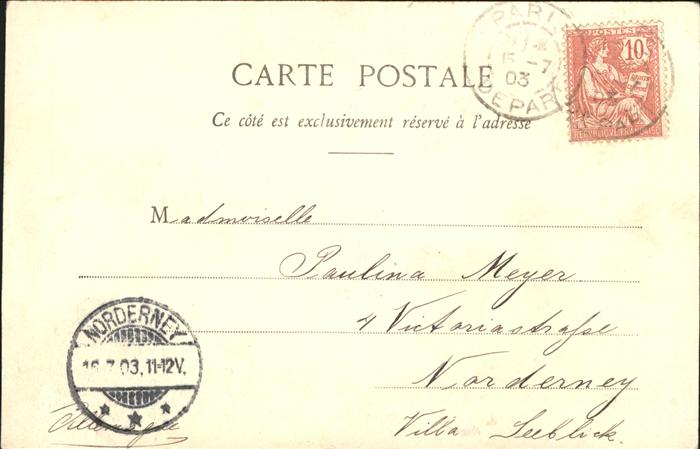 PARI
15 -7
03
DEPART
POSTES
10
REPUBLIQUE FRANÇAISE
CARTE POSTALE
Ce côté est exclusivement réservé à l'adresse
Mademoiselle
Paulina Meyer
4 Victoriastraſse
Norderney
Villa Seeblick.
Allemagne
NORDERNEY
16.7.03.11-12V.